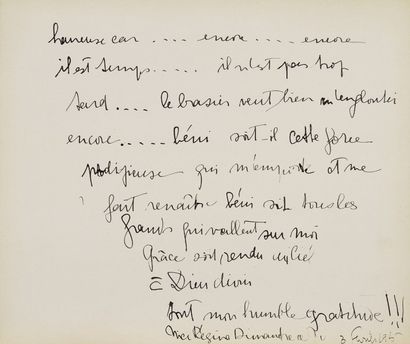 heureuse car .... encore .... encore
il est temps ..... il n'est pas trop
tard .... le brasier veut bien m'engloutir
encore ..... béni soit-il cette force
prodigieuse qui m'emporte et me
fait renaître béni soit tous les
qui veillent sur moi
Grâce soit rendu
à Dieu
mon humble gratitude !!!
Regina